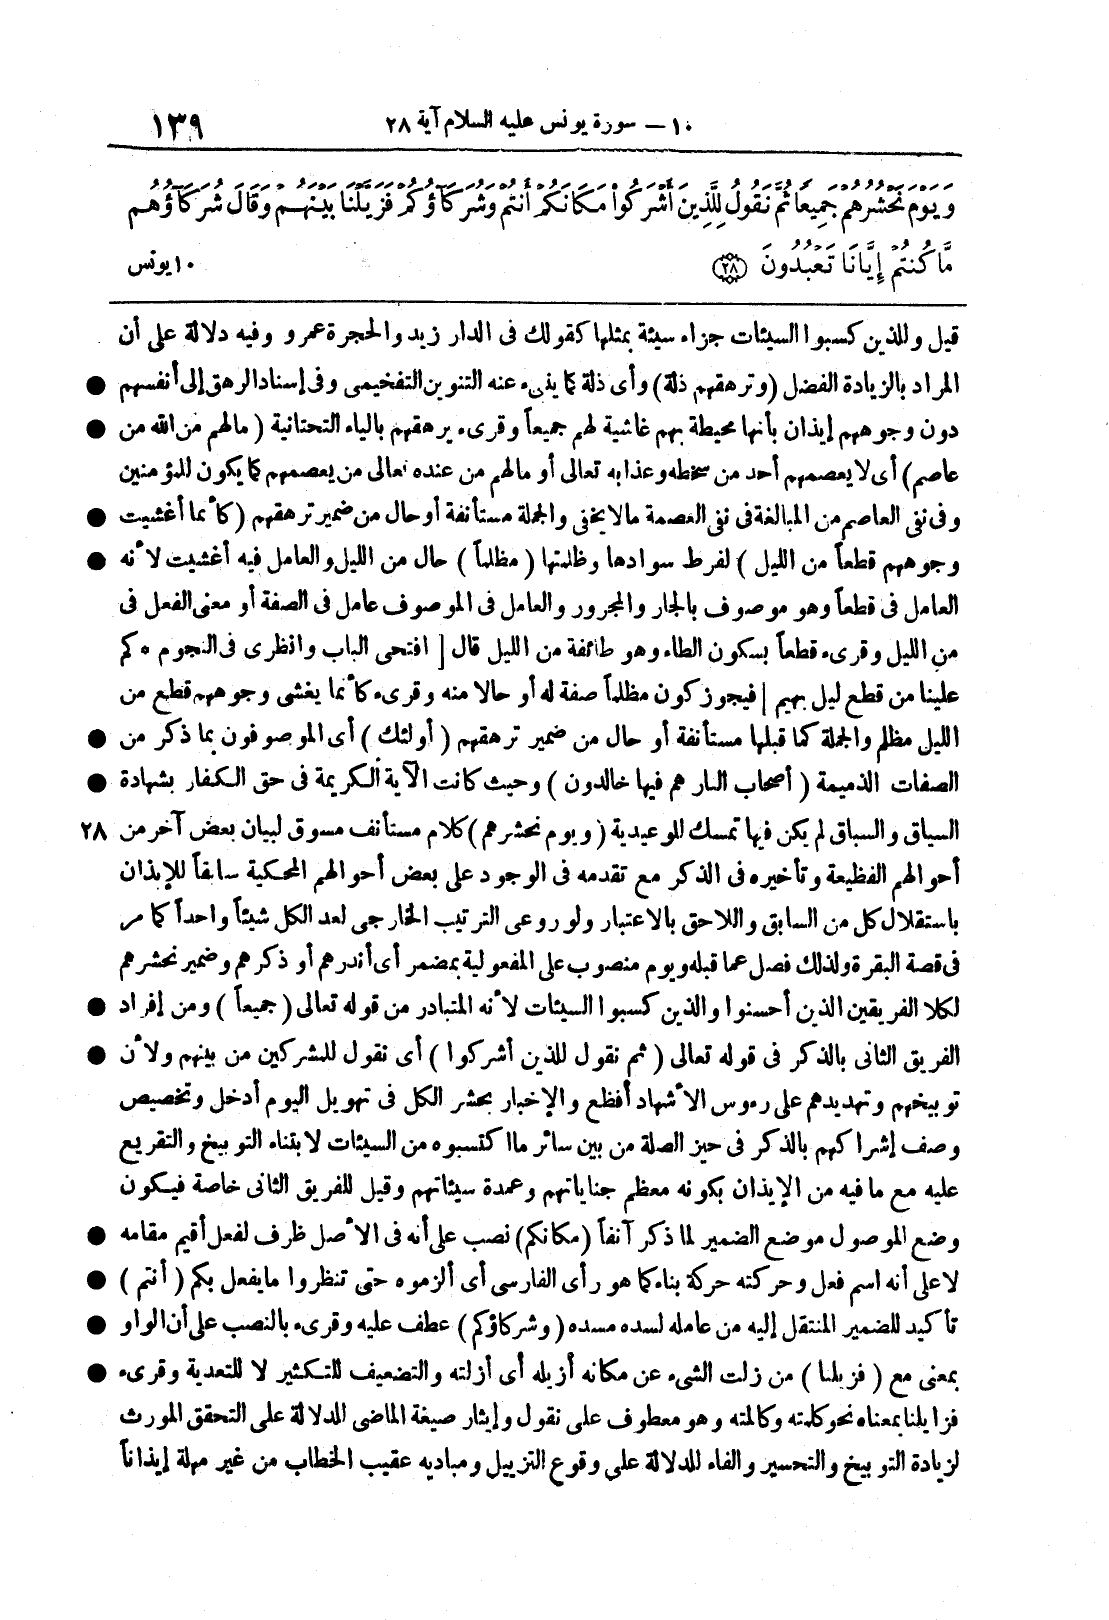 ١٠ – سورة يونس عليه السلام آية ٢٨ ١٣٩
وَيَوْمَ نَحْشُرُهُمْ جَمِيعًا ثُمَّ نَقُولُ لِلَّذِينَ أَشْرَكُوا۟ مَكَانَكُمْ أَنتُمْ وَشُرَكَآؤُكُمْ فَزَيَّلْنَا بَيْنَهُمْ وَقَالَ شُرَكَآؤُهُم
مَّا كُنتُمْ إِيَّانَا تَعْبُدُونَ ﴿٢٨﴾ ١٠ يونس
قيل وللذين كسبوا السيئات جزاء سيئة بمثلها كقولك فى الدار زيد والحجرة عمرو وفيه دلالة على أن
المراد بالزيادة الفضل (وترهقهم ذلة) وأى ذلة كما ينبىء عنه التنوين التفخيمى وفى إسناد الرهق إلى أنفسهم ●
دون وجوههم إيذان بأنها محيطة بهم غاشية لهم جميعاً وقرىء يرهقهم بالياء التحتانية (مالهم من الله من ●
عاصم) أى لا يعصمهم أحد من سخطه وعذابه تعالى أو مالهم من عنده تعالى من يعصمهم كما يكون للمؤمنين
وفى نفى العاصم من المبالغة فى نفى العصمة مالا يخفى والجملة مستأنفة أو حال من ضمير ترهقهم (كأنما أغشيت ●
وجوههم قطعاً من الليل) لفرط سوادها وظلمتها (مظلماً) حال من الليل والعامل فيه أغشيت لأنه ●
العامل فى قطعاً وهو موصوف بالجار والمجرور والعامل فى الموصوف عامل فى الصفة أو معنى الفعل فى
من الليل وقرىء قطعاً بسكون الطاء وهو طائفة من الليل قال [ افتحى الباب وانظرى فى النجوم ه كم
علينا من قطع ليل بهيم ] فيجوز كون مظلماً صفة له أو حالا منه وقرىء كأنما يغشى وجوههم قطع من
الليل مظلم والجملة كما قبلها مستأنفة أو حال من ضمير ترهقهم (أولئك) أى الموصوفون بما ذكر من ●
الصفات الذميمة (أصحاب النار هم فيها خالدون) وحيث كانت الآية الكريمة فى حق الكفار بشهادة ●
السياق والسباق لم يكن فيها تمسك للوعيدية (ويوم نحشرهم) كلام مستأنف مسوق لبيان بعض آخر من ٢٨
أحوالهم الفظيعة وتأخيره فى الذكر مع تقدمه فى الوجود على بعض أحوالهم المحكية سابقاً للإيذان
باستقلال كل من السابق واللاحق بالاعتبار ولو روعى الترتيب الخارجى لعد الكل شيئاً واحداً كما مر
فى قصة البقرة ولذلك فصل عما قبله ويوم منصوب على المفعولية بمضمر أى أنذرهم أو ذكرهم وضمير نحشرهم
لكلا الفريقين الذين أحسنوا والذين كسبوا السيئات لأنه المتبادر من قوله تعالى (جميعاً) ومن إفراد ●
الفريق الثانى بالذكر فى قوله تعالى (ثم نقول للذين أشركوا) أى نقول للمشركين من بينهم ولأن ●
توبيخهم وتهديدهم على رءوس الأشهاد أفظع والإخبار بحشر الكل فى تهويل اليوم أدخل وتخصيص
وصف إشراكهم بالذكر فى حيز الصلة من بين سائر ما اكتسبوه من السيئات لابتناء التوبيخ والتقريع
عليه مع ما فيه من الإيذان بكونه معظم جناياتهم وعمدة سيئاتهم وقيل للفريق الثانى خاصة فيكون
وضع الموصول موضع الضمير لما ذكر آنفاً (مكانكم) نصب على أنه فى الأصل ظرف لفعل أقيم مقامه ●
لا على أنه اسم فعل وحركته حركة بناء كما هو رأى الفارسى أى ألزموه حتى تنظروا ما يفعل بكم (أنتم) ●
تأكيد للضمير المنتقل إليه من عامله لسده مسده (وشركاؤكم) عطف عليه وقرىء بالنصب على أن الواو ●
بمعنى مع (فزيلنا) من زلت الشىء عن مكانه أزيله أى أزلته والتضعيف للتكثير لا للتعدية وقرىء ●
فزايلنا بمعناه نحو كلمته وكالمته وهو معطوف على نقول وإيثار صيغة الماضى للدلالة على التحقق المورث
لزيادة التوبيخ والتحسير والفاء للدلالة على وقوع التزييل ومباديه عقيب الخطاب من غير مهلة إيذاناً